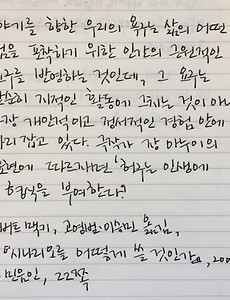 야기를 향한 우리의 욕구는 삶의 어떤
을 포착하기 위한 인간의 근원적인
구를 반영하는 것인데, 그 욕구는
순히 지적인 활동에 그치는 것이 아니
장 개인적이고 정서적인 경험 안에
리 잡고 있다. 극작가 장 아누이의
현에 따르자면 '허구는 인생에
형식을 부여한다.'
버트 맥키, 고영범·이승민 옮김,
『시나리오를 어떻게 쓸 것인가』, 200
민음인, 22쪽